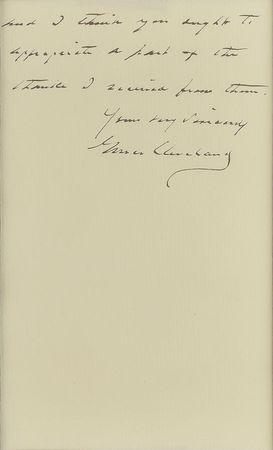 and I think you ought to
appropriate a part of the
thanks I received from them.
Yours very sincerely
Grover Cleveland